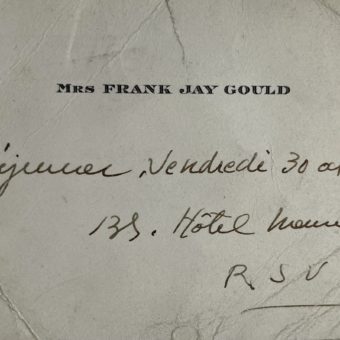 Mrs FRANK JAY GOULD
éjeuner, Vendredi 30 a
Hôtel
R S V